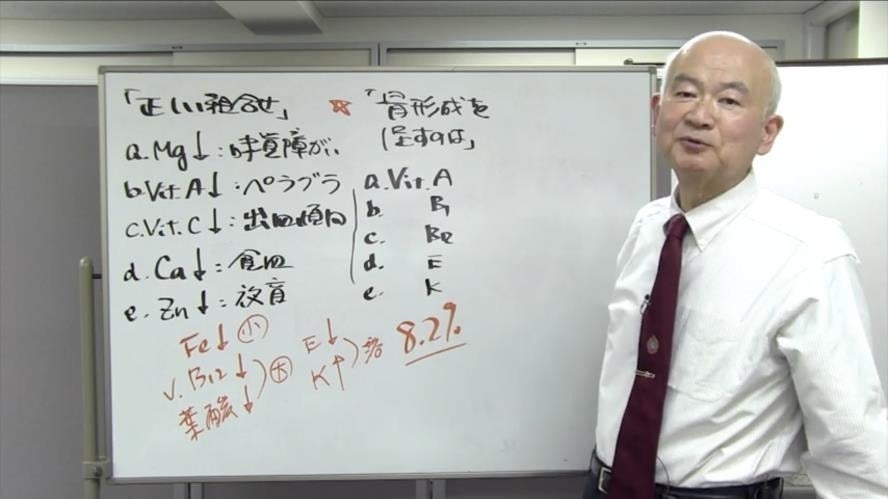 「正しい組合せ」
a. Mg↓：味覚障がい
b. Vit. A↓：ペラグラ
c. Vit. C↓：出血傾向
d. Ca↓：貧血
e. Zn↓：
Fe↓ 小
V. B12↓
葉酸↓
大
E↓
K↑
溶
8.2%
☆「骨形成を
促すのは」
a. Vit. A
b. B1
c. B2
d. E
e. K